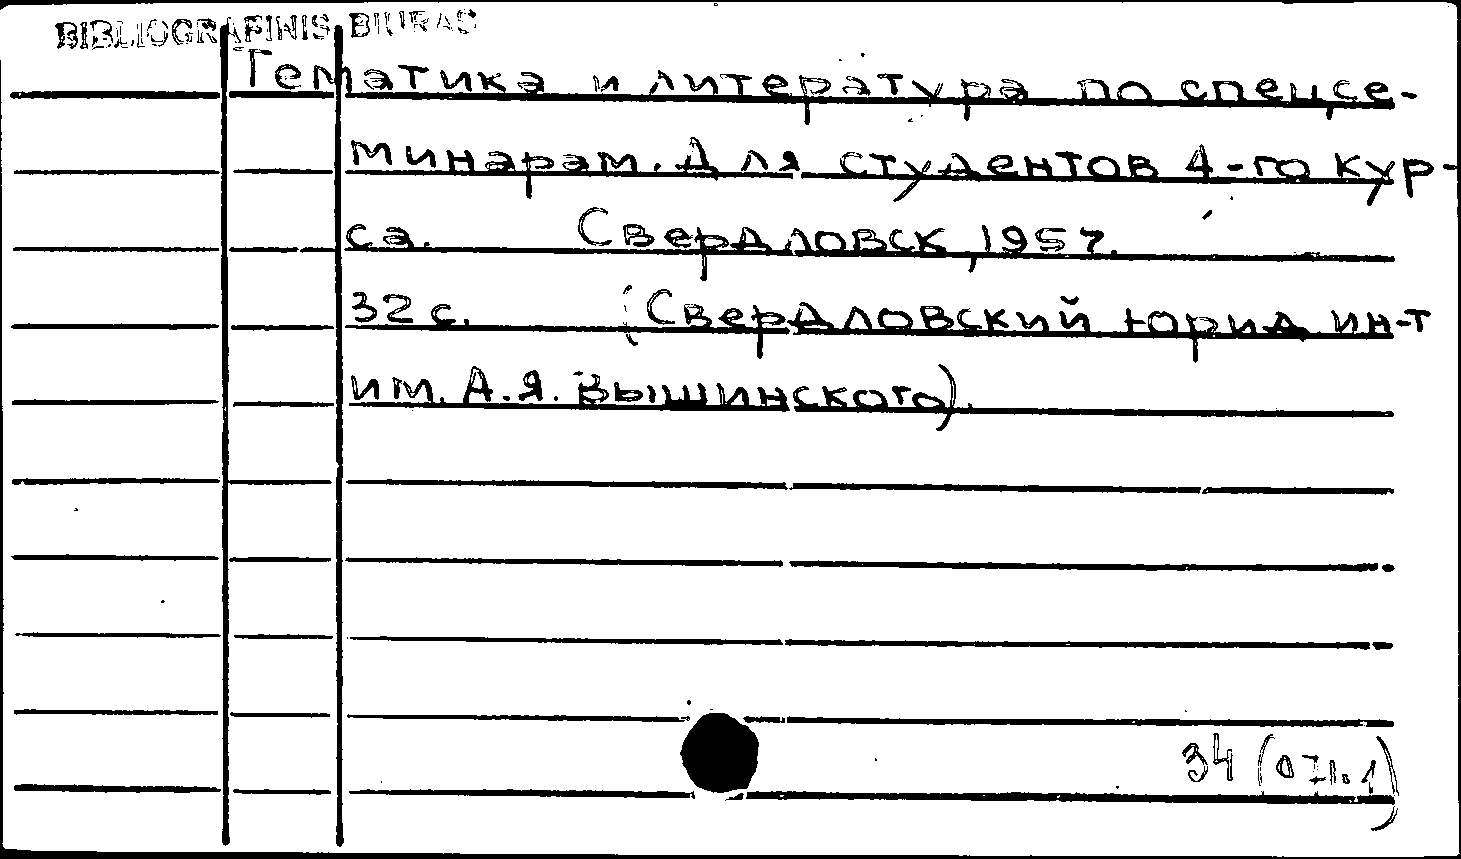 BIBLIOGRAFINIS BIURAS
Тематика и литература по спецсе-
минарам. Для студентов 4-го кур-
са. Свердловск, 1957.
32 с. (Свердловский юрид ин-т
им. А.Я. Вышинского).
34 (071.1)